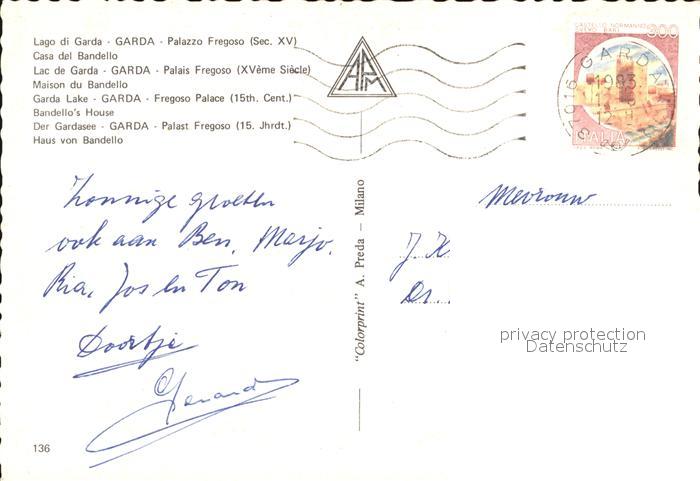 Lago di Garda - GARDA - Palazzo Fregoso (Sec. XV)
Casa del Bandello
Lac de Garda - GARDA - Palais Fregoso (XVème Siècle)
Maison du Bandello
Garda Lake - GARDA - Fregoso Palace (15th. Cent.)
Bandello's House
Der Gardasee - GARDA - Palast Fregoso (15. Jhrdt.)
Haus von Bandello
CASTELLO NORMANNO
SVEVO BARI
300
ITALIA
37016 GARDA
1983
Zonnige groeten
ook aan Ben, Marjo,
Ria, Jos en Ton
Doortje
Gerard
"Colorprint" A. Preda – Milano
Mevrouw
J. K.
Dr.
privacy protection
Datenschutz
136